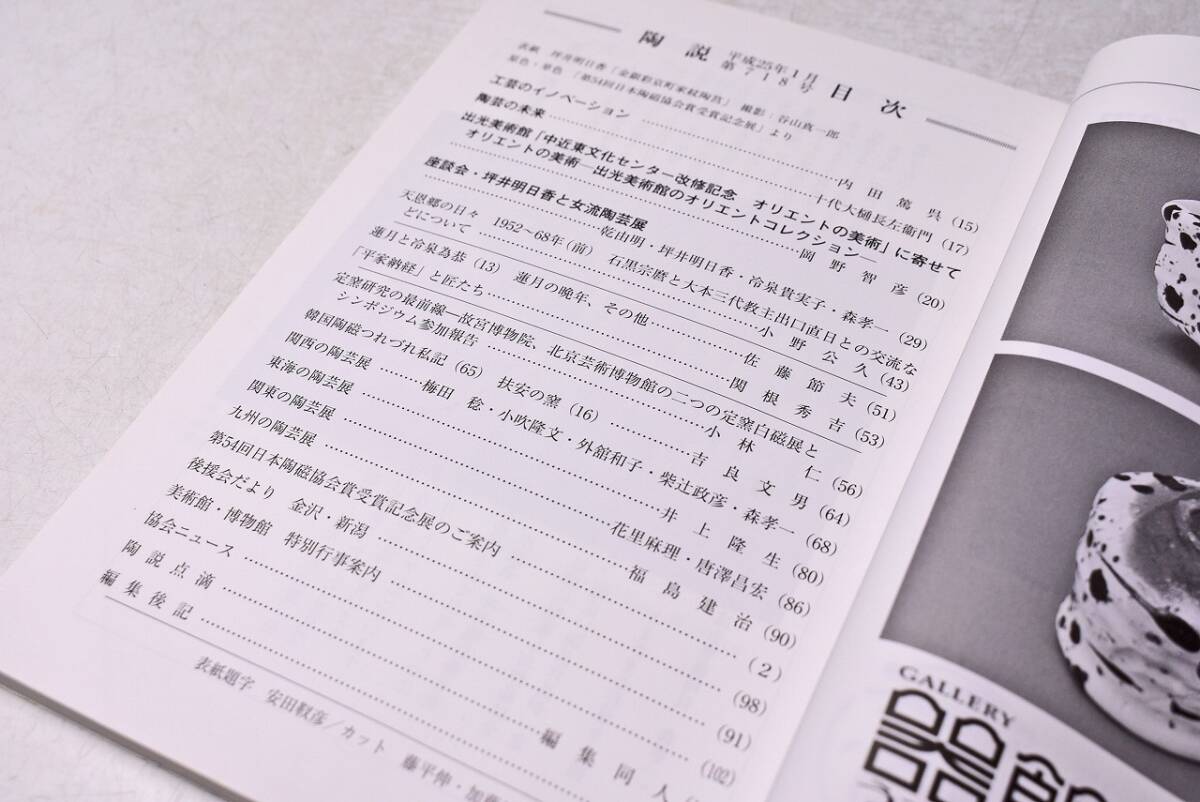 陶説 平成25年1月 第718号 目次
表紙 坪井明日香「金銀彩京町家紋陶筥」 撮影:谷山真一郎
原色・単色 「第54回日本陶磁協会賞受賞記念展」より
工芸のイノベーション 内田篤呉 (15)
陶芸の未来 十代大樋長左衛門 (17)
出光美術館「中近東文化センター改修記念 オリエントの美術」に寄せて
オリエントの美術―出光美術館のオリエントコレクション― 岡野智彦 (20)
座談会・坪井明日香と女流陶芸展 乾由明・坪井明日香・冷泉貴実子・森孝一 (29)
天恩郷の日々 1952〜68年(前) 石黒宗麿と大本三代教主出口直日との交流な
どについて 小野公久 (43)
蓮月と冷泉為恭(13) 蓮月の晩年、その他 佐藤節夫 (51)
「平家納経」と匠たち 関根秀吉 (53)
定窯研究の最前線―故宮博物院、北京芸術博物館の二つの定窯白磁展と
シンポジウム参加報告 小林仁 (56)
韓国陶磁つれづれ私記(65) 扶安の窯(16) 吉良文男 (64)
関西の陶芸展 梅田稔・小吹隆文・外舘和子・柴辻政彦・森孝一 (68)
東海の陶芸展 井上隆生 (80)
関東の陶芸展 花里麻理・唐澤昌宏 (86)
九州の陶芸展 福島建治 (90)
第54回日本陶磁協会賞受賞記念展のご案内 (2)
後援会だより 金沢・新潟 (98)
美術館・博物館 特別行事案内 (91)
協会ニュース (102)
陶説点滴 編集同人
編集後記
表紙題字 安田靫彦/カット 藤平伸・加藤
GALLERY
器館